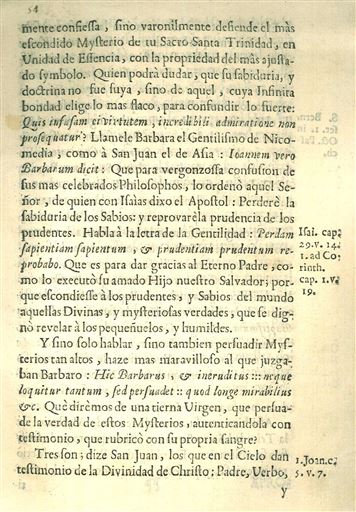 54
mente confiessa, sino varonilmente defiende el màs
escondido Mysterio de tu Sacro Santa Trinidad, en
Unidad de Essencia, con la propiedad del màs ajusta-
do symbolo. Quien podrà dudar, que su sabiduria, y
doctrina no fue suya, sino de aquel, cuya Infinita
bondad elige lo mas flaco, para confundir lo fuerte:
Quis infusam ei virtutem, incredibili admiratione non
prosequatur? Llamele Barbara el Gentilismo de Nico-
media, como à San Juan el de Asia: Ioannem vero
Barbarum dicit: Que para vergonzossa confusion de
sus mas celebrados Philosophos, lo ordenò aquel Se-
ñor, de quien con Isaias dixo el Apostol: Perderè la
sabiduria de los Sabios: y reprovarèla prudencia de los
prudentes. Habla à la letra de la Gentilidad: Perdam
sapientiam sapientum, & prudentiam prudentum re-
probabo. Que es para dar gracias al Eterno Padre, co-
mo lo executò su amado Hijo nuestro Salvador; por-
que escondiesse à los prudentes, y Sabios del mundo
aquellas Divinas, y mysteriosas verdades, que se dig-
nò revelar à los pequeñuelos, y humildes.
Isai. cap.
29. v. 14.
1. ad Co-
rinth.
cap. 1. v.
19.
Y sino solo hablar, sino tambien persuadir Mys-
terios tan altos, haze mas maravilloso al que juzga-
ban Barbaro: Hic Barbarus, & ineruditus ::: neque
loquitur tantum, sed persuadet :: quod longe mirabilius
&c. Què dirèmos de una tierna Virgen, que persua-
de la verdad de estos Mysterios, autenticandola con
testimonio, que rubricò con su propria sangre?
Tres son; dize San Juan, los que en el Cielo dan
testimonio de la Divinidad de Christo: Padre, Verbo,
1. Joan. c.
5. v. 7.
y